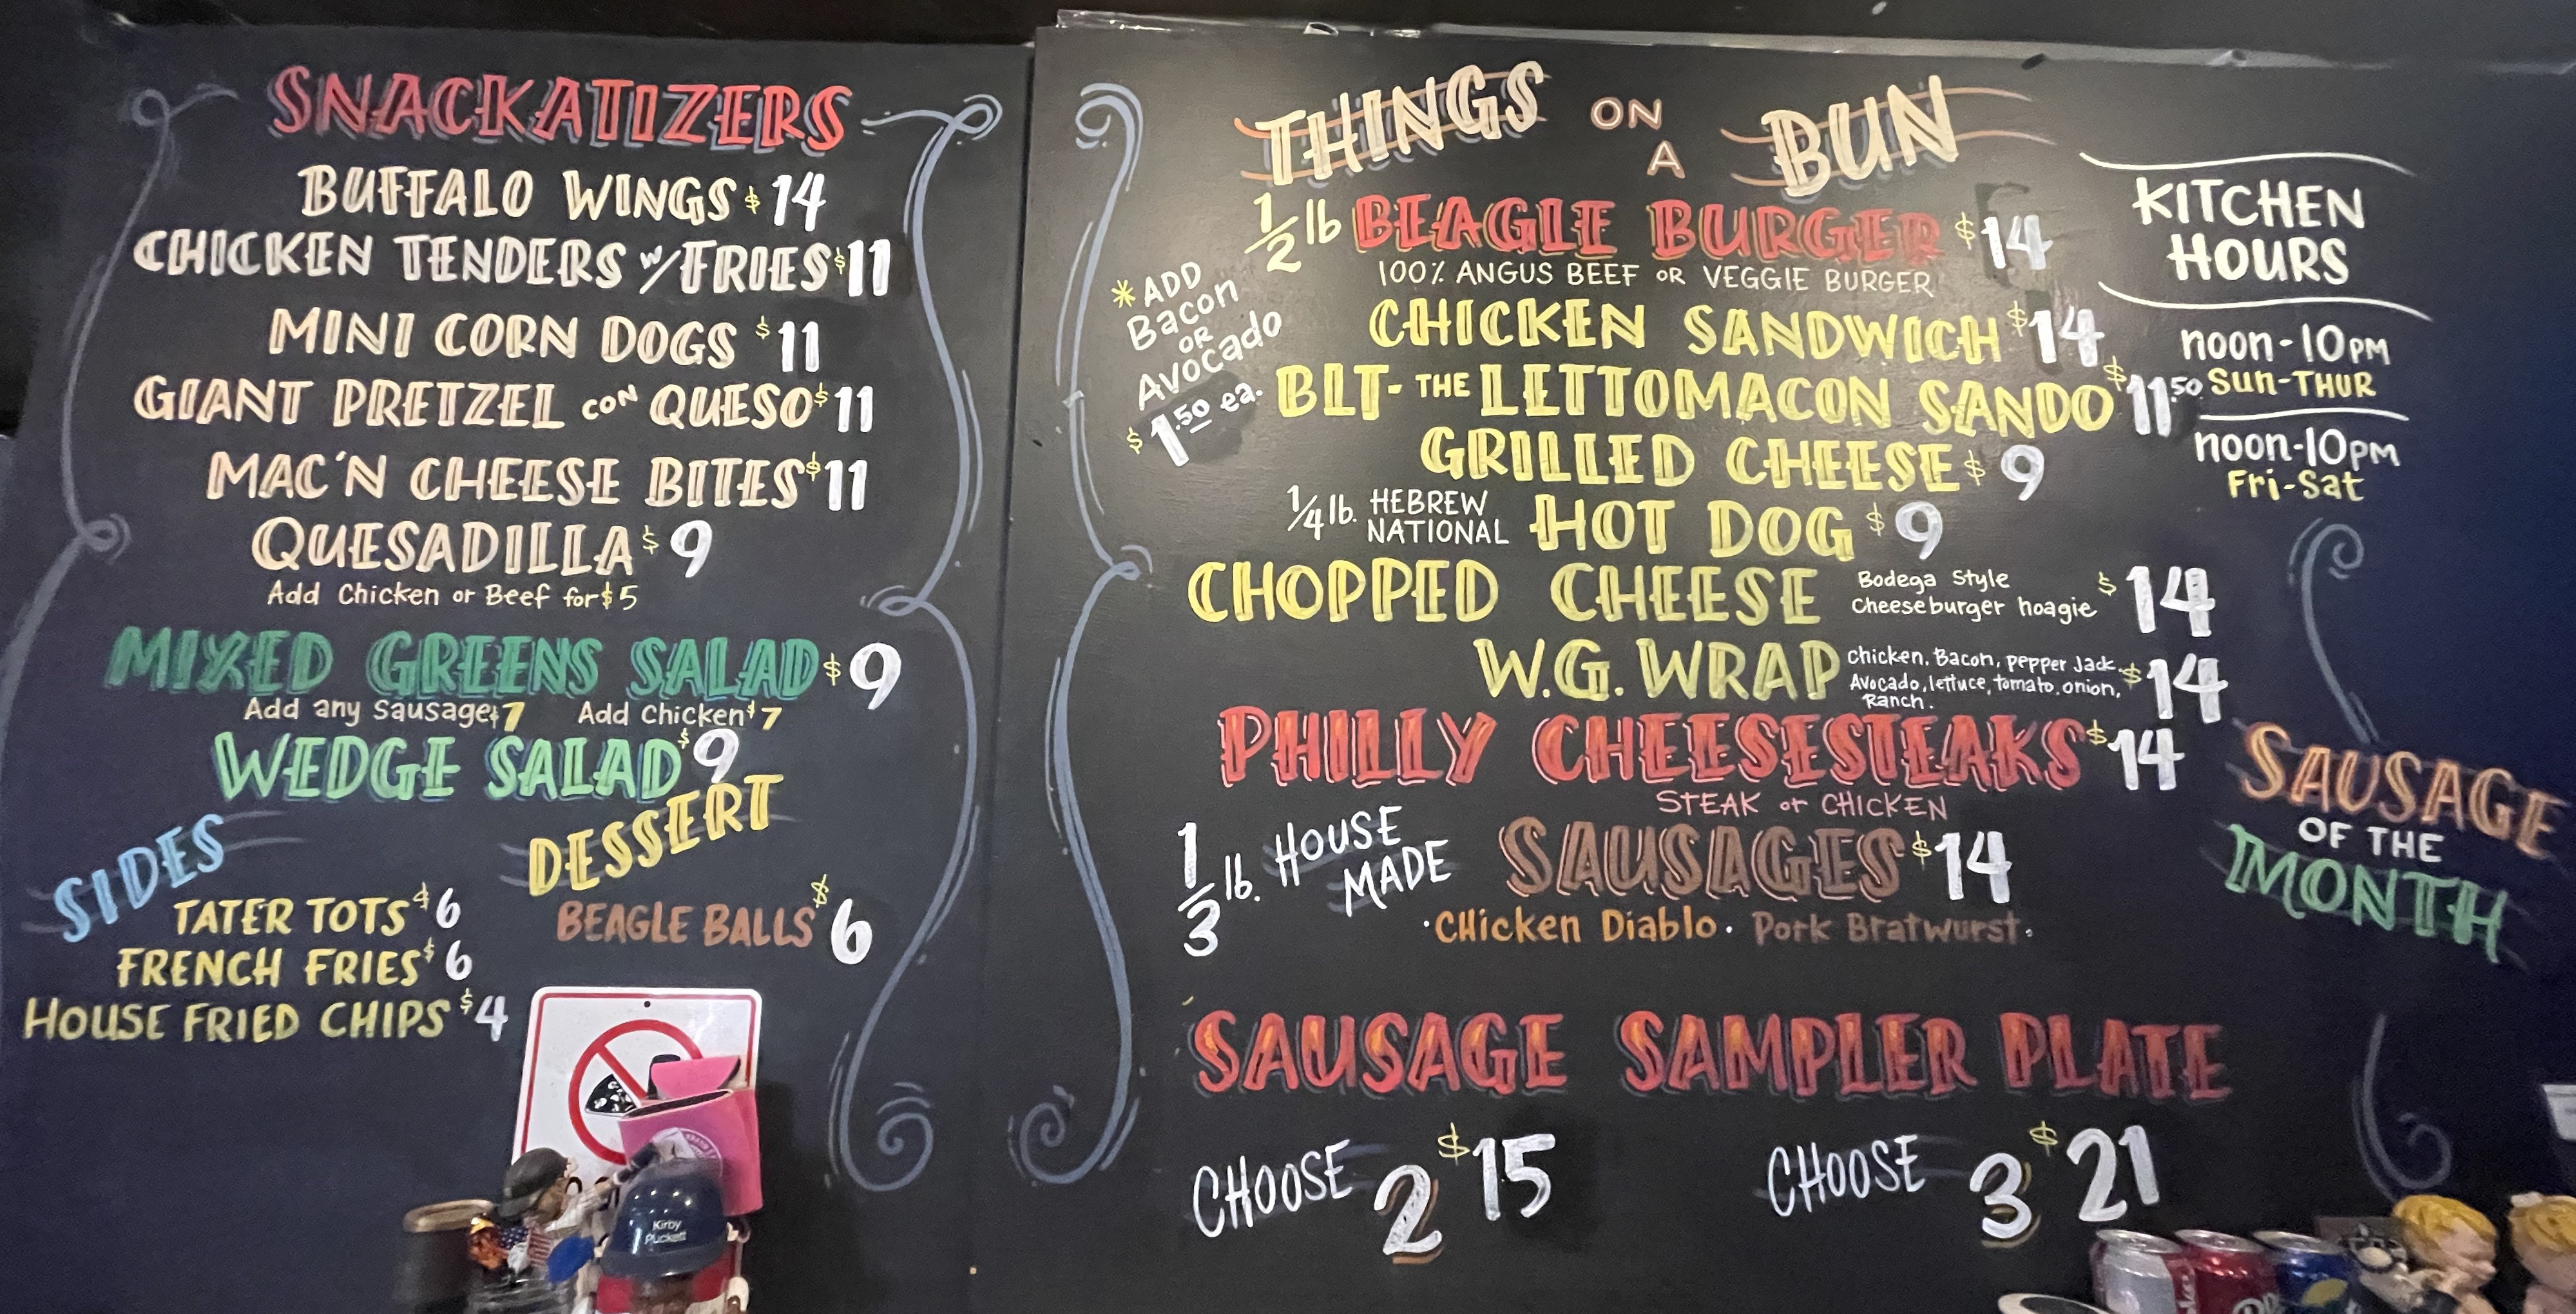 SNACKATIZERS
BUFFALO WINGS $14
CHICKEN TENDERS w/FRIES $11
MINI CORN DOGS $11
GIANT PRETZEL CON QUESO $11
MAC'N CHEESE BITES $11
QUESADILLA $9
Add Chicken or Beef for $5
MIXED GREENS SALAD $9
Add any Sausage $7 Add Chicken $7
WEDGE SALAD $9
SIDES
TATER TOTS $6
FRENCH FRIES $6
HOUSE FRIED CHIPS $4
DESSERT
BEAGLE BALLS $6
Kirby
Puckett
THINGS ON
A BUN
1/2 lb BEAGLE BURGER $14
100% ANGUS BEEF OR VEGGIE BURGER
*ADD
Bacon
OR
Avocado
$1.50 ea.
CHICKEN SANDWICH $14
BLT- THE LETTOMACON SANDO $11.50
GRILLED CHEESE $9
1/4 lb. HEBREW
NATIONAL HOT DOG $9
CHOPPED CHEESE Bodega Style
Cheeseburger hoagie $14
W.G. WRAP chicken, Bacon, pepper Jack,
Avocado, lettuce, tomato, onion,
Ranch. $14
PHILLY CHEESESTEAKS $14
STEAK or CHICKEN
1/3 lb. HOUSE
MADE SAUSAGES $14
·Chicken Diablo· Pork Bratwurst·
SAUSAGE SAMPLER PLATE
CHOOSE 2 $15 CHOOSE 3 $21
KITCHEN
HOURS
noon-10PM
Sun-THUR
noon-10PM
Fri-Sat
SAUSAGE
OF THE
MONTH